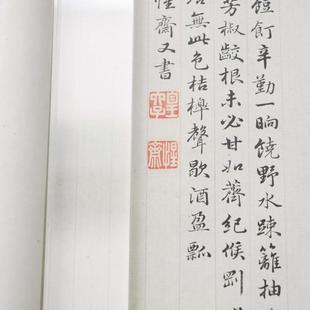 饐飣辛勤一晌饒野水疎籬抽
芳椒齩根未必甘如薺紀候剛
無此色桔槹聲歇酒盈瓢
惺齋又書